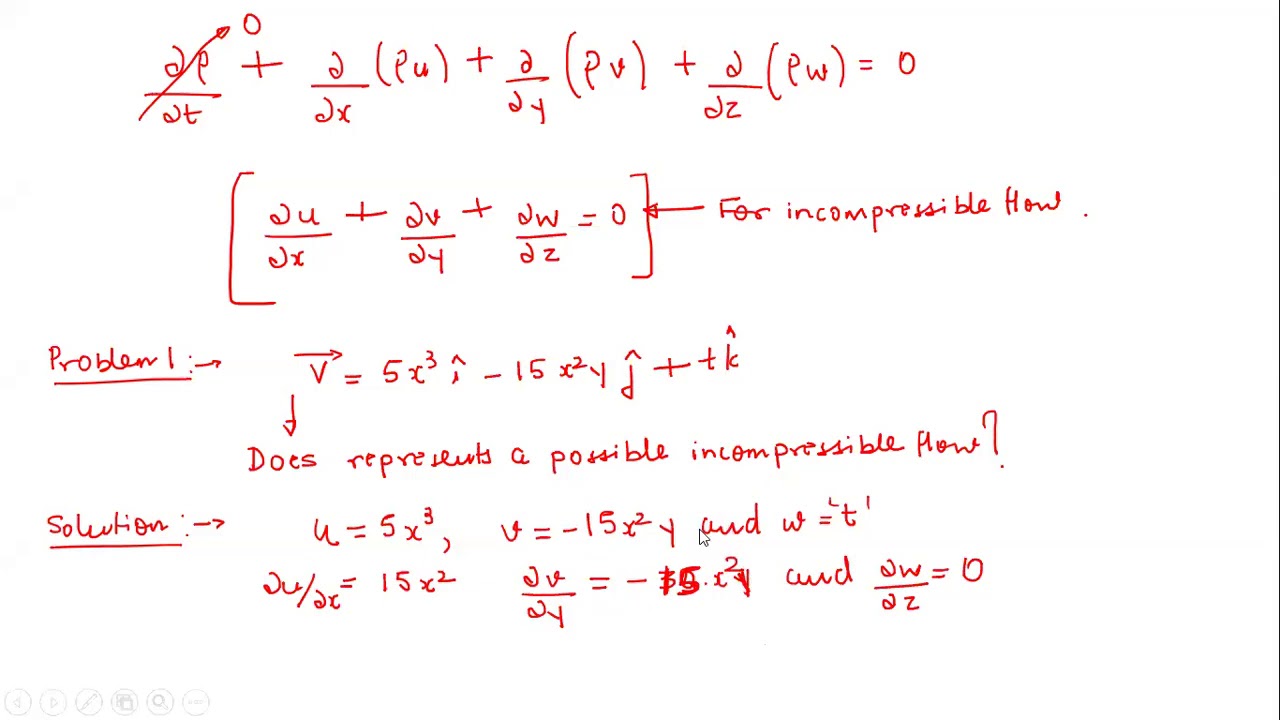 ∂ρ/∂t → 0 + ∂/∂x (ρu) + ∂/∂y (ρv) + ∂/∂z (ρw) = 0
[ ∂u/∂x + ∂v/∂y + ∂w/∂z = 0 ] ← For incompressible flow.
Problem 1 :→ V⃗ = 5x³ î - 15x²y ĵ + t k̂
↓
Does represents a possible incompressible flow?
Solution :→ u = 5x³, v = -15x²y and w = 't'
∂u/∂x = 15x² ∂v/∂y = -15x² and ∂w/∂z = 0